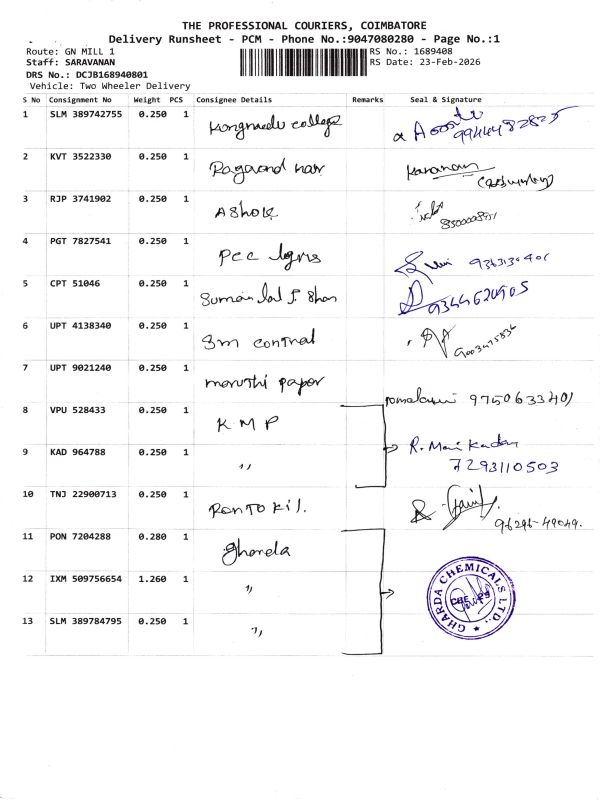 THE PROFESSIONAL COURIERS, COIMBATORE
Delivery Runsheet - PCM - Phone No.:9047080280 - Page No.:1
Route: GN MILL 1 RS No.: 1689408
Staff: SARAVANAN RS Date: 23-Feb-2026
DRS No.: DCJB168940801
Vehicle: Two Wheeler Delivery
S No Consignment No Weight PCS Consignee Details Remarks Seal & Signature
1 SLM 389742755 0.250 1 college
2 KVT 3522330 0.250 1
3 RJP 3741902 0.250 1 Ashok
4 PGT 7827541 0.250 1 pcc
5 CPT 51046 0.250 1 9344620905
6 UPT 4138340 0.250 1 3m
7 UPT 9021240 0.250 1 maruthi paper 9750633401
8 VPU 528433 0.250 1 KMP
9 KAD 964788 0.250 1 " R. Mari 7293110503
10 TNJ 22900713 0.250 1 96296-49049.
11 PON 7204288 0.280 1
12 IXM 509756654 1.260 1 " GHARDA CHEMICALS LTD.,
13 SLM 389784795 0.250 1 "